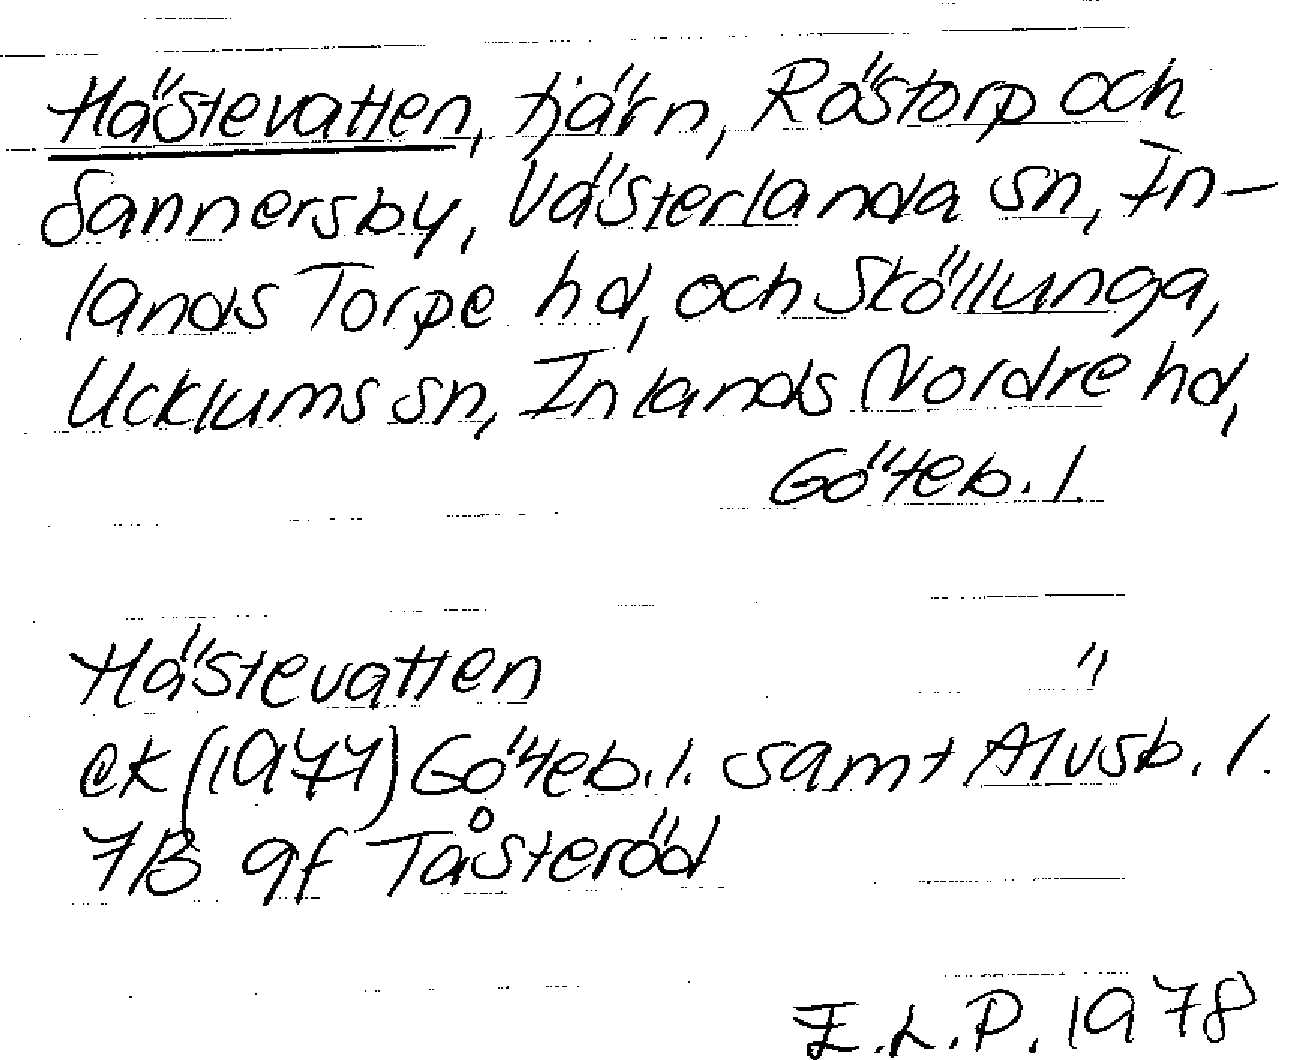 Hästevatten, tjärn, Röstorp och
Sannersby, Västerlanda sn, In-
lands Torpe hd, och Sköllunga,
Ucklums sn, Inlands Nordre hd,
Göteb. l.
Hästevatten "
ek (1977) Göteb. l. samt Älvsb. l.
7B 9f Tåsteröd
E.L.P. 1978